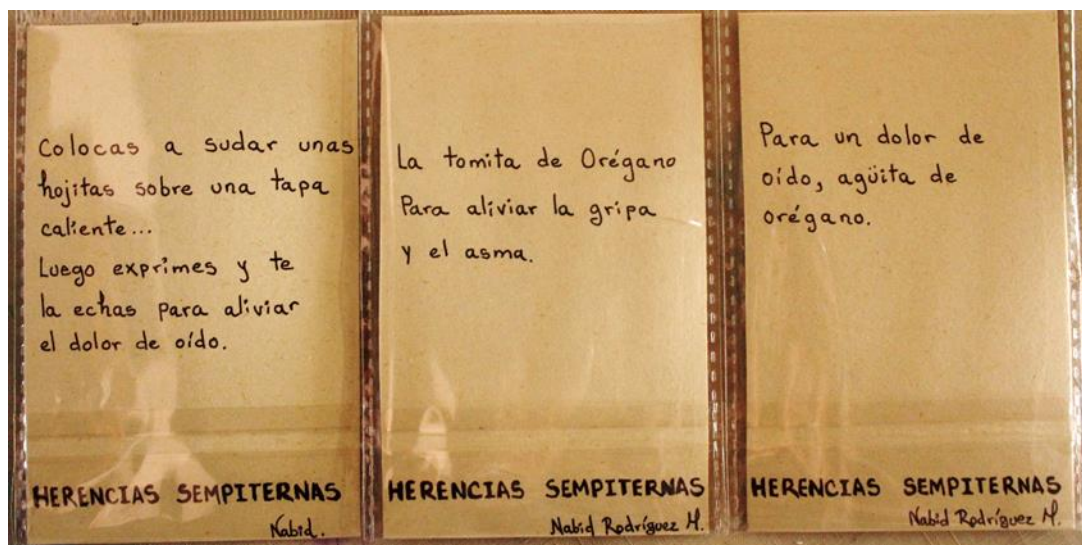 Colocas a sudar unas
hojitas sobre una tapa
caliente...
Luego exprimes y te
la echas para aliviar
el dolor de oído.
HERENCIAS SEMPITERNAS
Nabid.
La tomita de Orégano
Para aliviar la gripa
y el asma.
HERENCIAS SEMPITERNAS
Nabid Rodríguez M.
Para un dolor de
oído, agüita de
orégano.
HERENCIAS SEMPITERNAS
Nabid Rodríguez M.